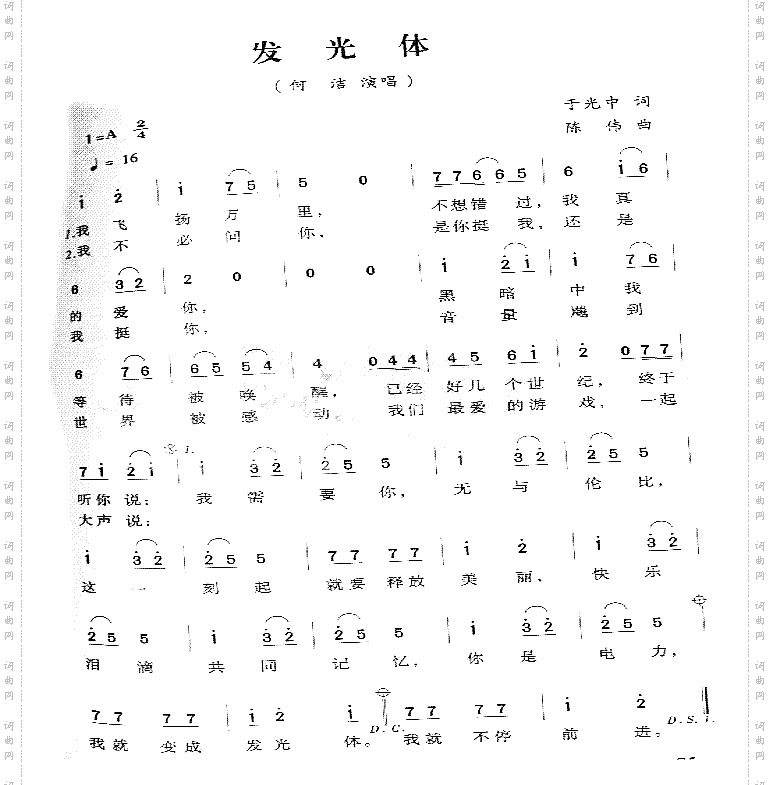 发 光 体
（何 洁 演唱）
于光中 词
陈 伟 曲
1=A 2/4
♩= 16
i 2 | i 7 5 | 5 0 | 7 7 6 6 5 | 6 i 6 |
1.我 飞 扬 万 里， 不想错 过，我 真
2.我 不 必 问 你， 是你挺 我，还 是
6 3 2 | 2 0 | 0 0 | i 2 i | i 7 6 |
的 爱 你， 黑 暗 中 我
我 挺 你， 音 量 飚 到
6 7 6 | 6 5 5 4 | 4 0 4 4 | 4 5 6 i | 2 0 7 7 |
等 待 被 唤 醒， 已经 好几 个世 纪， 终于
世 界 被 感 动 我们 最爱 的游 戏， 一起
7 i 2 i | i 3 2 | 2 5 5 | i 3 2 | 2 5 5 |
听你 说： 我 需 要 你， 无 与 伦 比，
大声 说：
i 3 2 | 2 5 5 | 7 7 7 7 | i 2 | i 3 2 |
这 一 刻 起 就要 释放 美 丽、 快 乐
2 5 5 | i 3 2 | 2 5 5 | i 3 2 | 2 5 5 |
泪 滴 共 同 记 忆， 你 是 电 力，
7 7 7 7 | i 2 | i | 7 7 7 7 | i 2 |
D.C.
D.S.1.
我就 变成 发光 体。 我就 不停 前 进。
词曲网